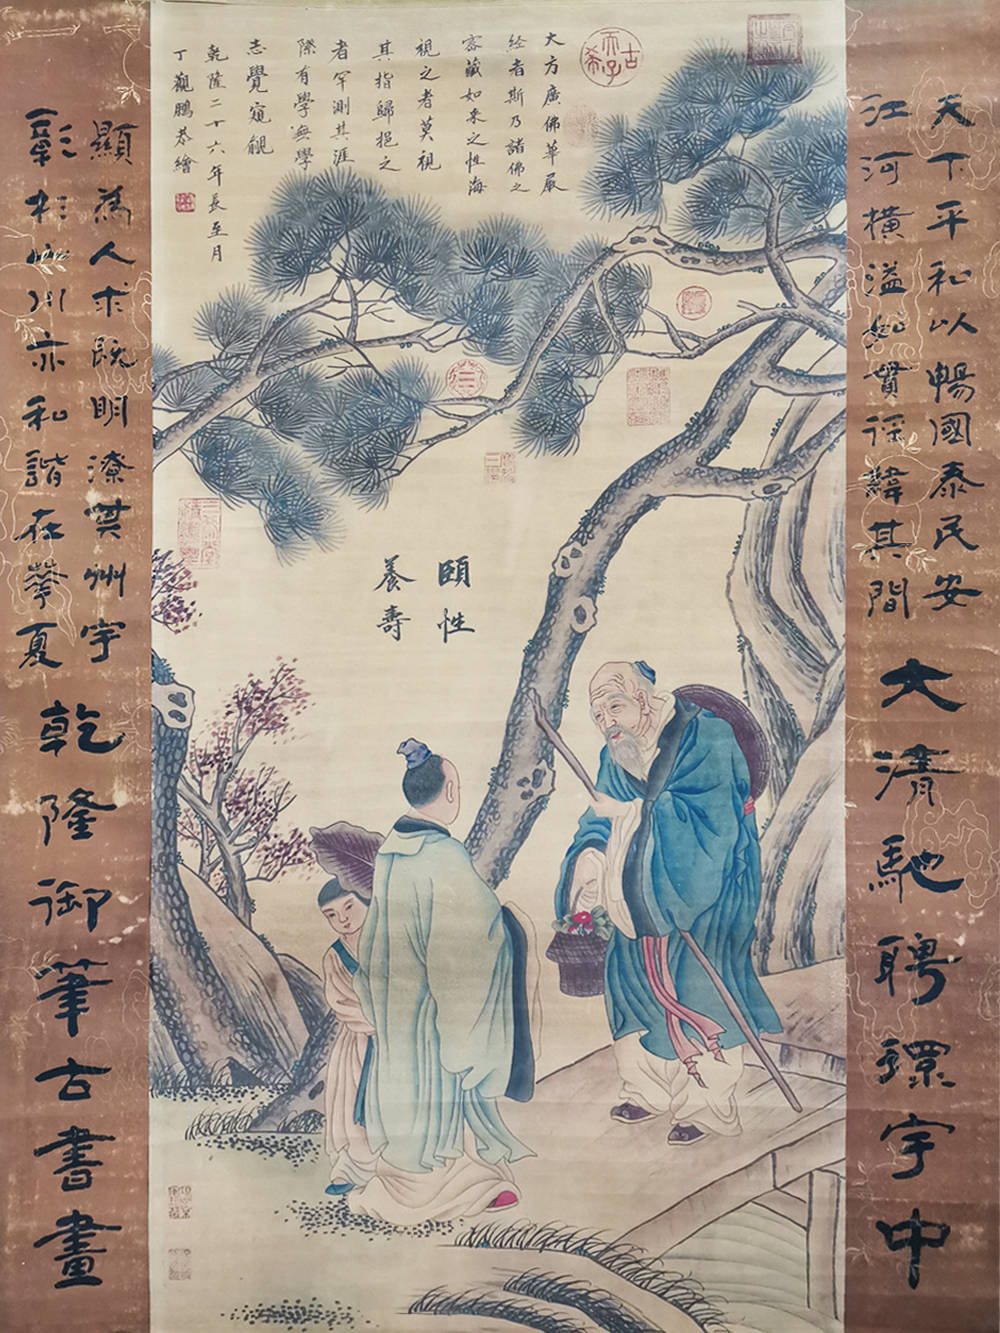 天下平和以暢國泰民安
江河橫溢如貫
其間
大清馳聘環宇中
大方廣佛華嚴
经者斯乃諸佛之
密藏如来之性海
視之者莫視
其指歸挹之
者罕測其涯
際有學無學
志覺窺覦
乾隆二十六年長至月
丁觀鵬恭繪
古希天子
頤性
養壽
顯為人求既明潦其州宇
川亦和諧在華夏
乾隆御筆古書畫